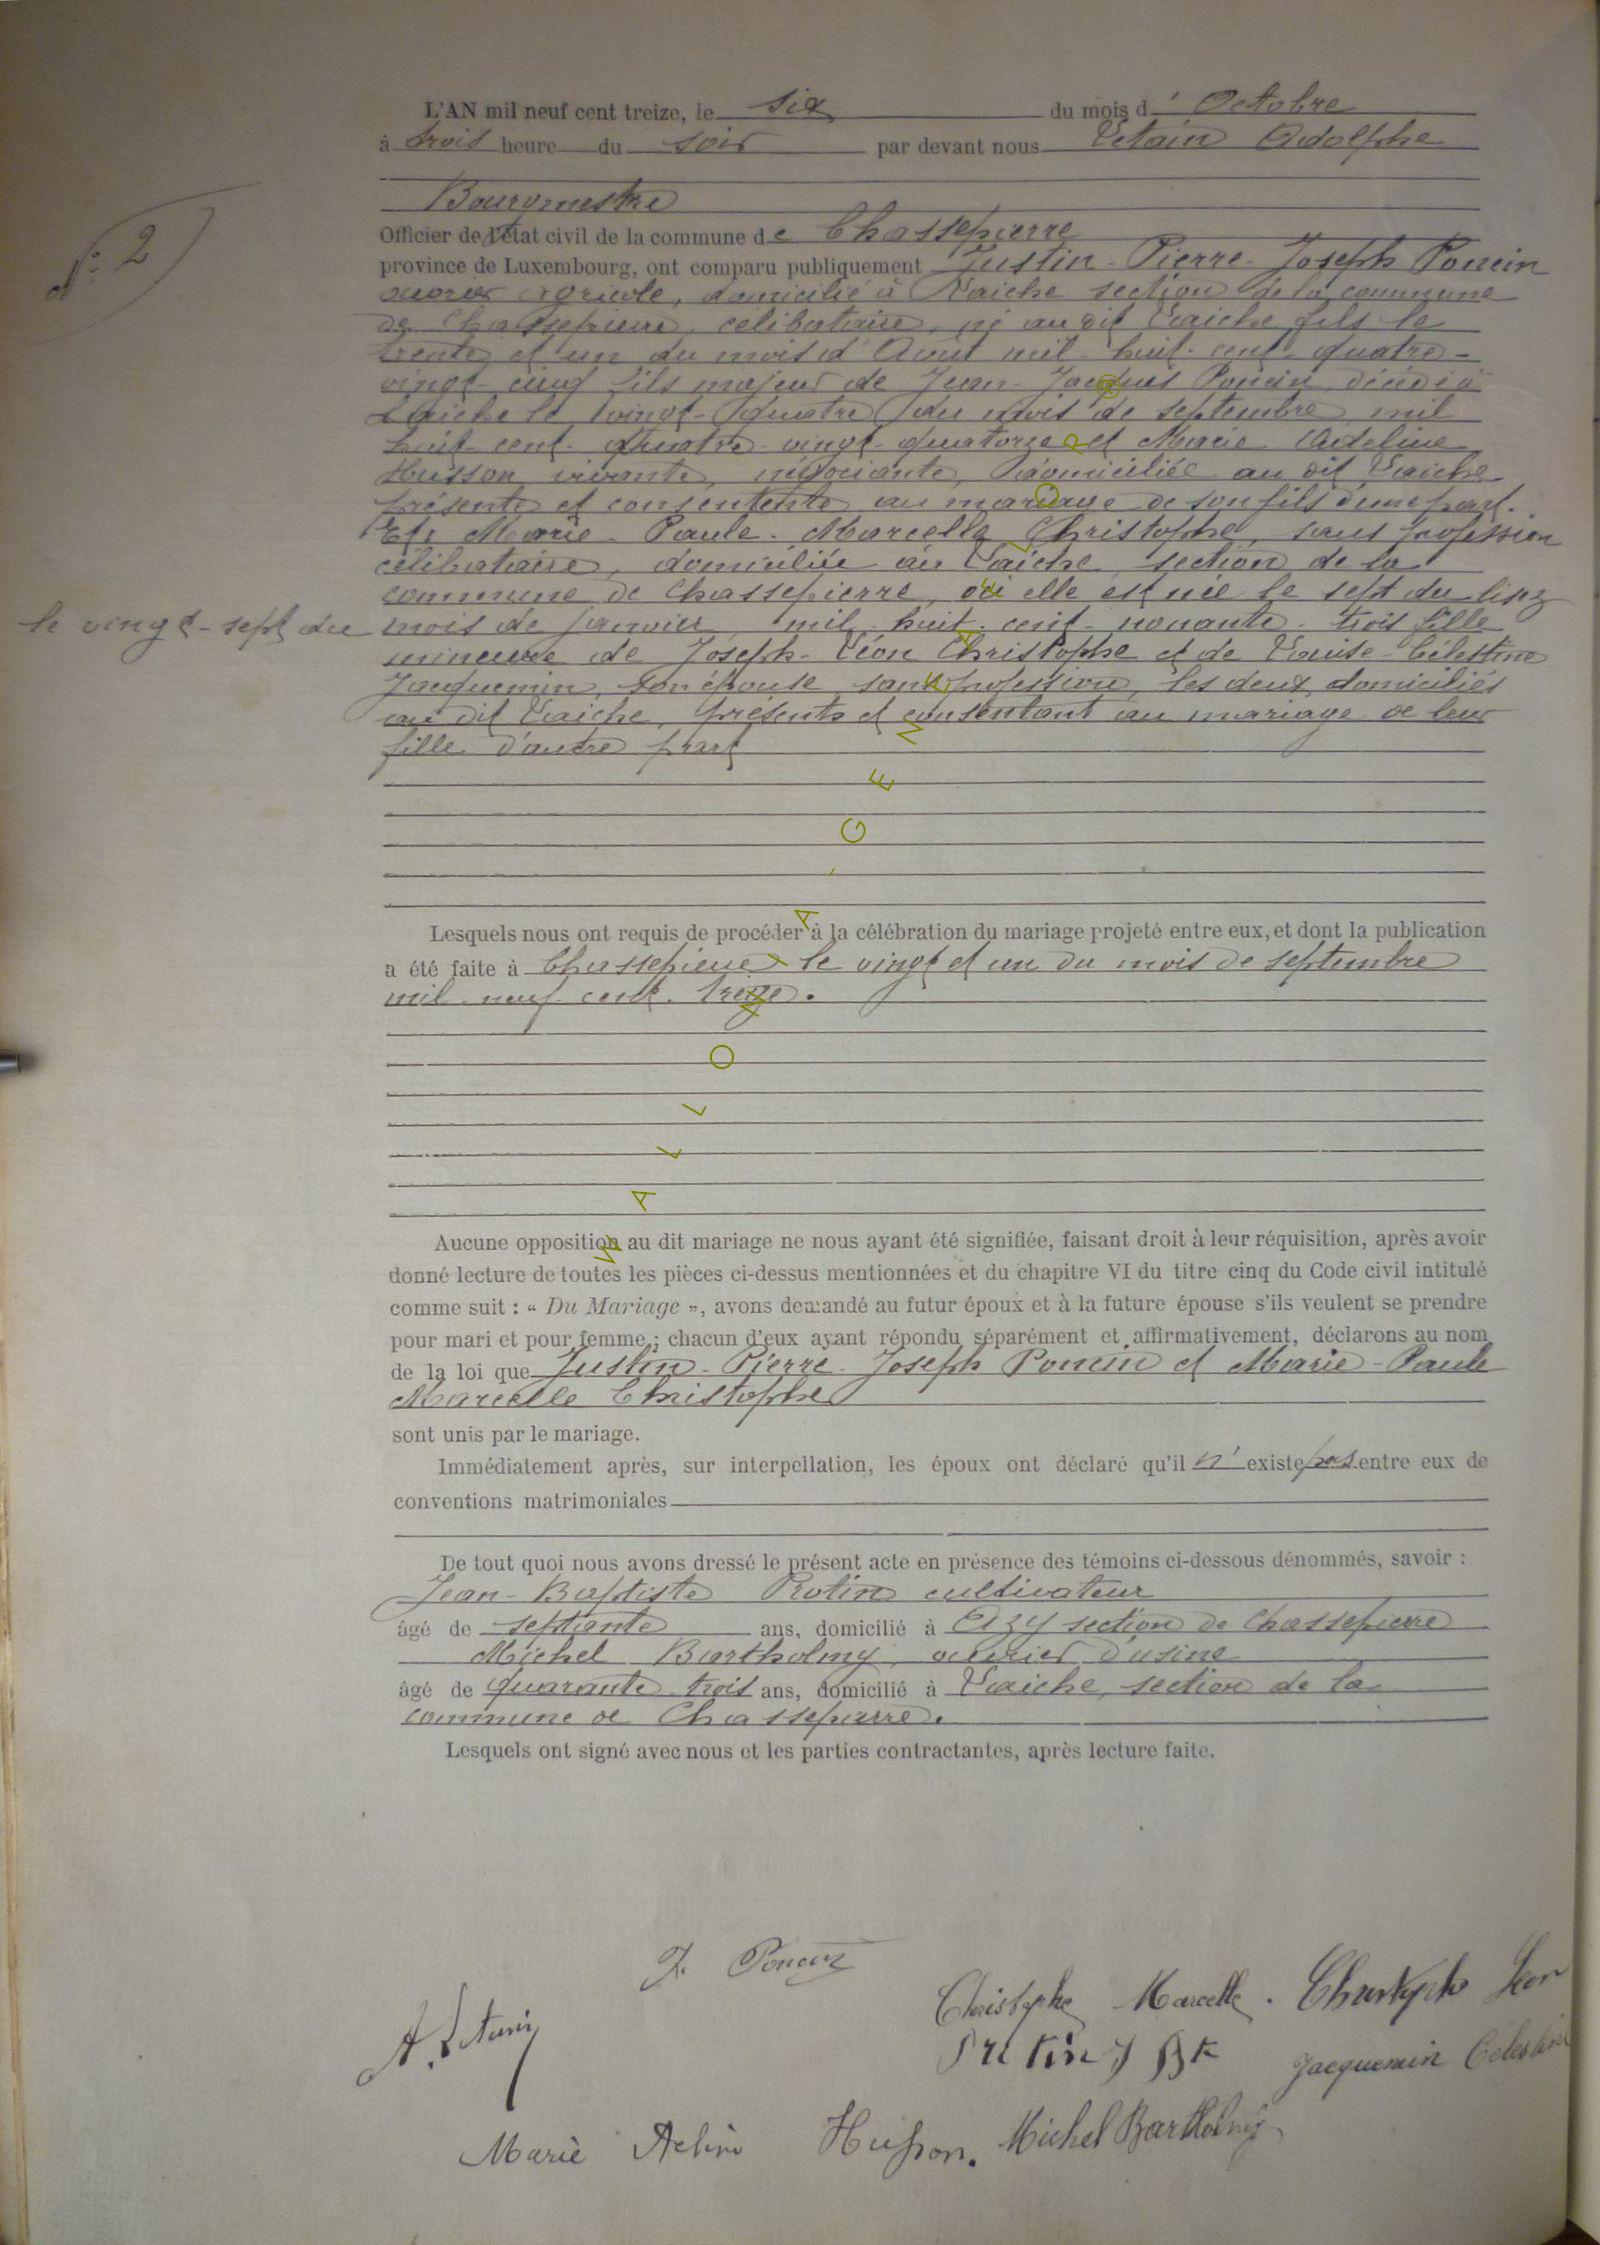 N° 2
L'AN mil neuf cent treize, le six du mois d' Octobre
à trois heure du soir par devant nous Létain Adolphe
Bourgmestre
Officier de l'état civil de la commune de Chassepierre
province de Luxembourg, ont comparu publiquement Justin-Pierre-Joseph Poncin
agricole, domicilié à Laiche section de la commune
de Chassepierre, célibataire, né au dit Laiche fils le
trente et un du mois d'Août mil-huit-cent-quatre-
vingt-cinq fils majeur de Jean-Jacques Poncin, décédé à
Laiche le vingt-quatre du mois de septembre mil
huit-cent-quatre-vingt-quatorze et Marie Adeline
Husson vivante, négociante, domiciliée au dit Laiche
présente et consentente au mariage de son fils d'une part.
Et: Marie-Paule-Marcelle Christophe, sans profession
célibataire, domiciliée au Laiche, section de la
commune de Chassepierre, où elle est née le sept du lisez
le vingt-sept du mois de janvier mil-huit-cent-nonante-trois fille
mineure de Joseph-Léon Christophe et de Louise-Célestine
Jacquemin, son épouse sans profession, les deux domiciliés
au dit Laiche, présents et consentant au mariage de leur
fille d'autre part
Lesquels nous ont requis de procéder à la célébration du mariage projeté entre eux, et dont la publication
a été faite à Chassepierre le vingt et un du mois de septembre
mil-neuf-cent-treize.
Aucune opposition au dit mariage ne nous ayant été signifiée, faisant droit à leur réquisition, après avoir
donné lecture de toutes les pièces ci-dessus mentionnées et du chapitre VI du titre cinq du Code civil intitulé
comme suit : « Du Mariage », avons demandé au futur époux et à la future épouse s'ils veulent se prendre
pour mari et pour femme ; chacun d'eux ayant répondu séparément et affirmativement, déclarons au nom
de la loi que Justin-Pierre-Joseph Poncin et Marie-Paule
Marcelle Christophe
sont unis par le mariage.
Immédiatement après, sur interpellation, les époux ont déclaré qu'il n' existe pas entre eux de
conventions matrimoniales
De tout quoi nous avons dressé le présent acte en présence des témoins ci-dessous dénommés, savoir :
Jean-Baptiste Protin cultivateur
âgé de septante ans, domicilié à Azy section de Chassepierre
Michel Bartholmy, ouvrier d'usine
âgé de quarante trois ans, domicilié à Laiche, section de la
commune de Chassepierre.
Lesquels ont signé avec nous et les parties contractantes, après lecture faite.
J. Poncin
Christophe Marcelle. Christophe Léon
A. Létain
Protin J Bte Jacquemin Célestine
Marie Adeline Husson. Michel Bartholmy
WALLONIA-GENNEALO.PR@